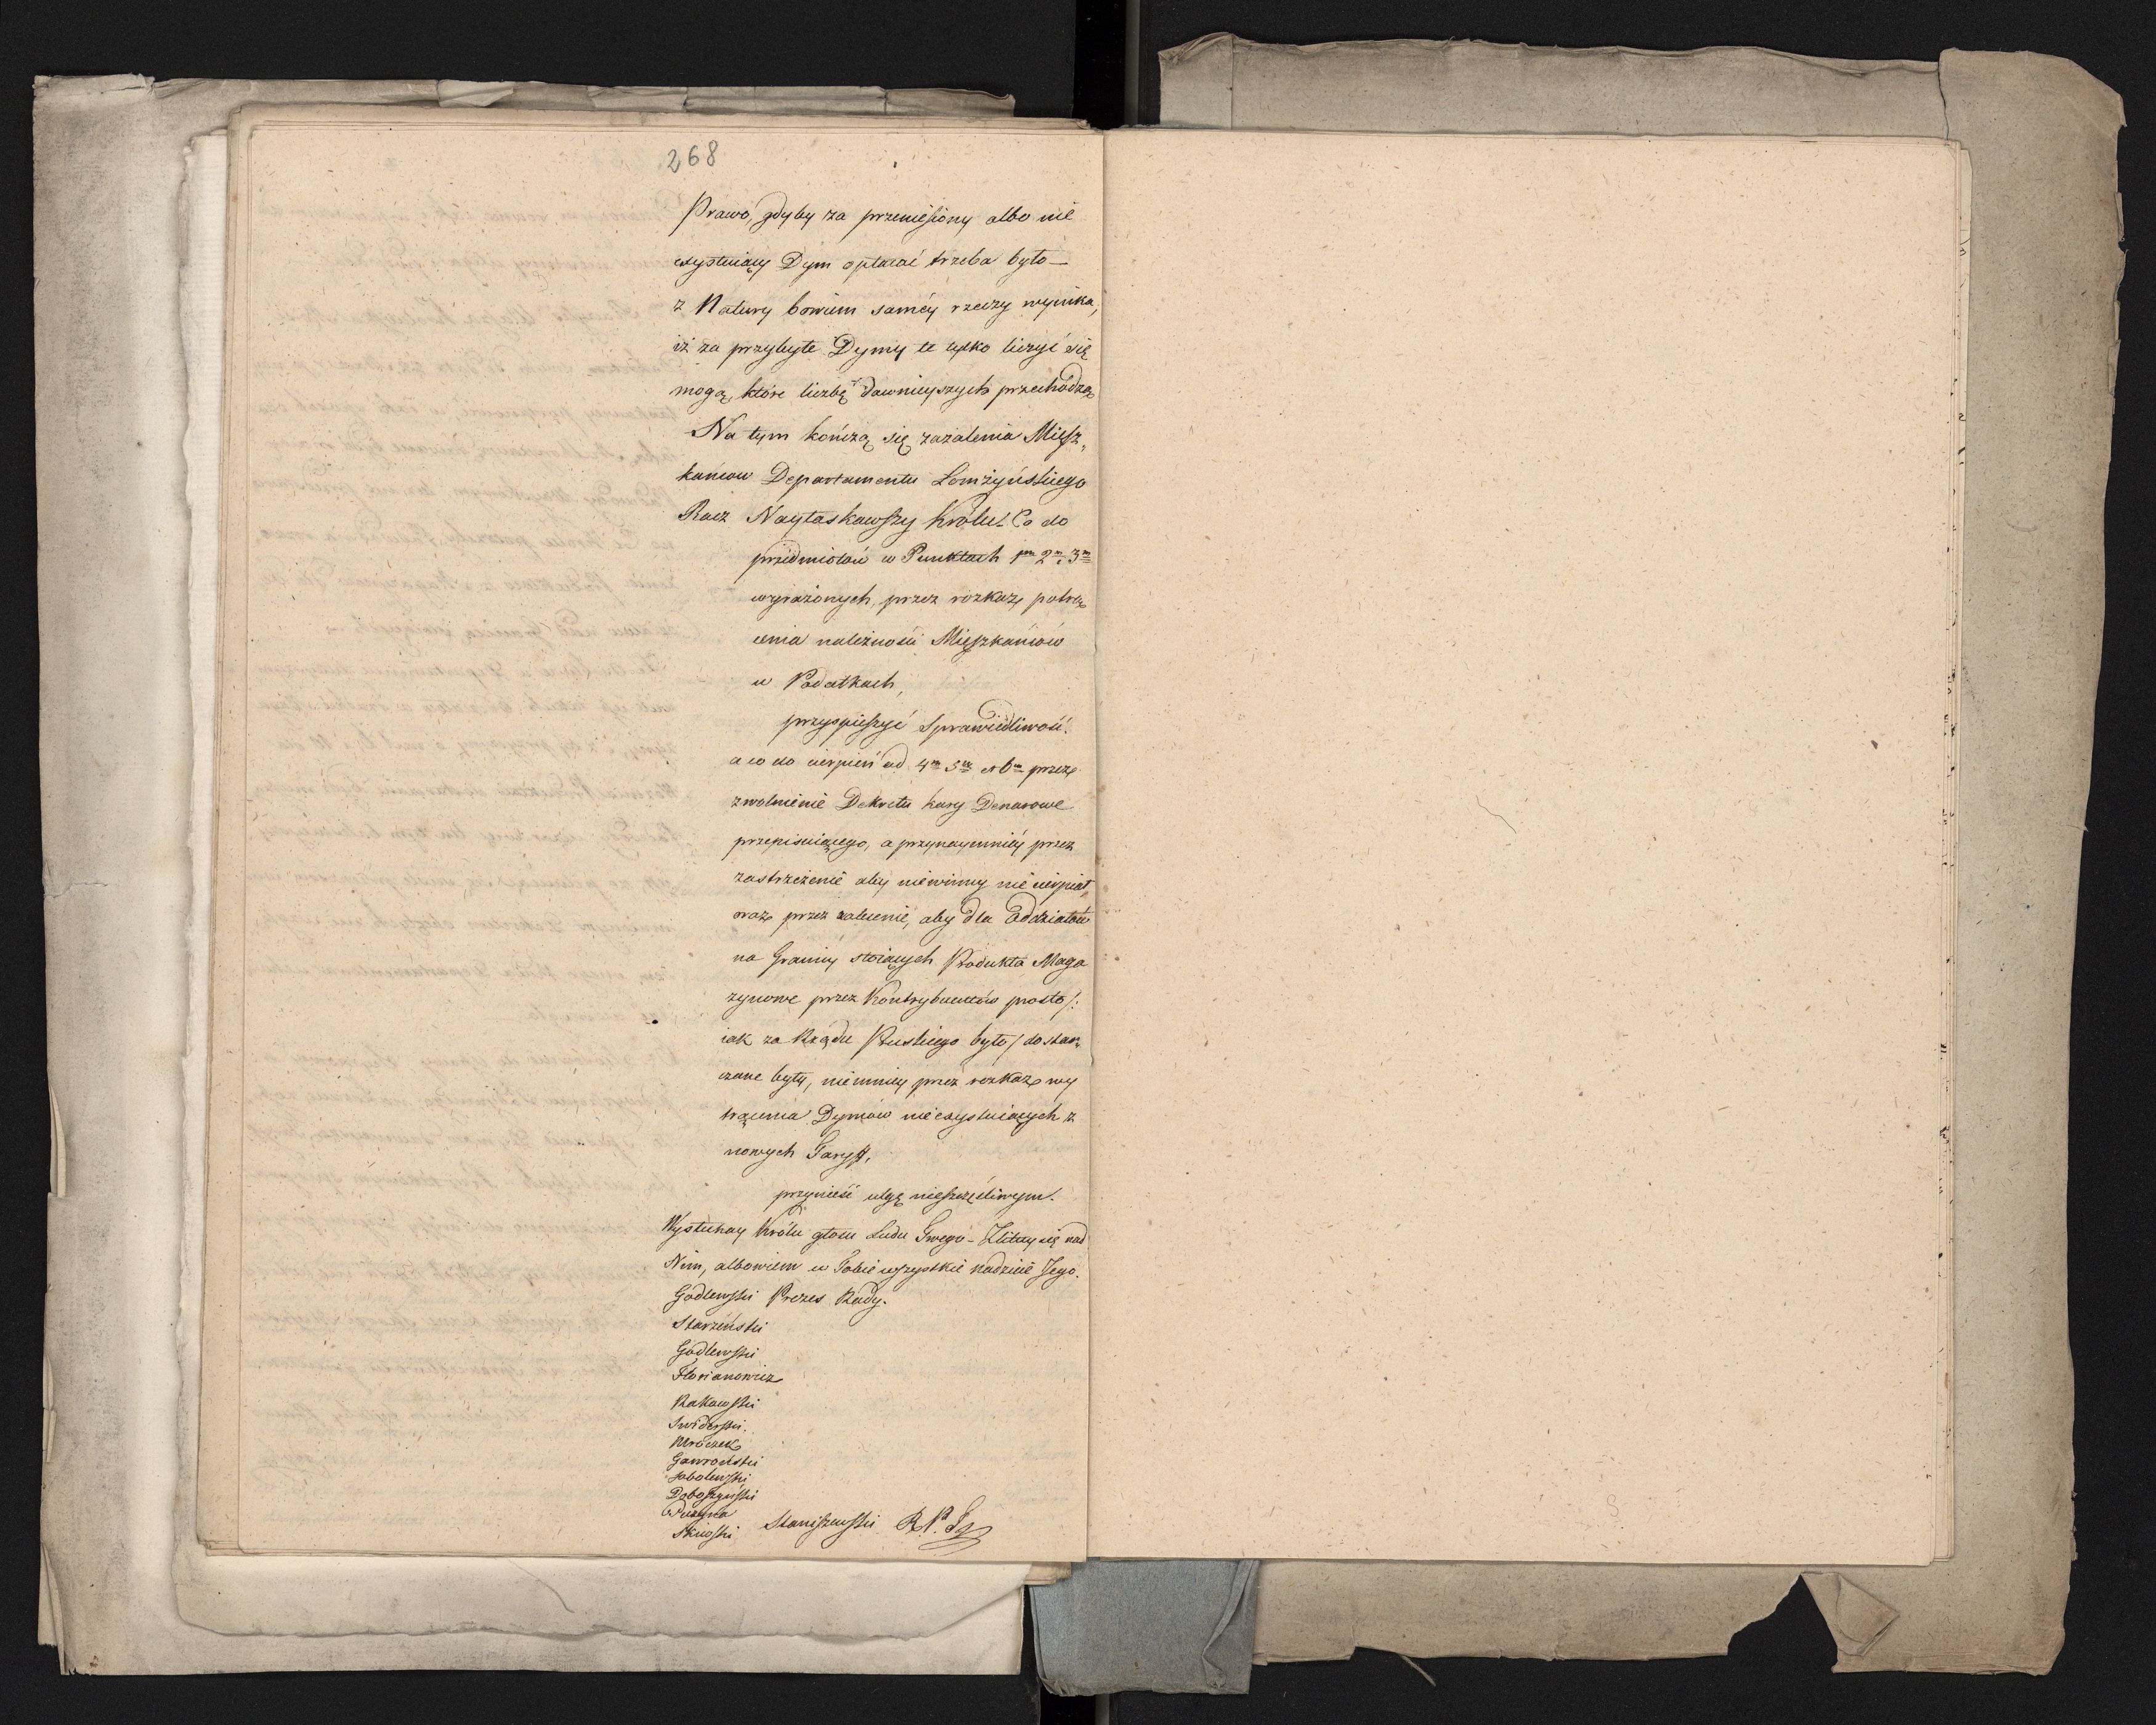 268
Prawo, gdyby za przeniesiony albo nie
exystuiący Dym opłacać trzeba było —
z Natury bowiem saméy rzeczy wynika,
iż za przybyłe Dymy te tylko liczyć się
mogą, które liczbę dawnieyszych przechodzą
Na tym kończą się zażalenia Miesz„
kańcow Departamentu Łomżyńskiego
Racz Nayłaskawszy Królu! Co do
przedmiotów w Punktach 1m 2m i 3m
wyrażonych, przez rozkaz potrą
cenia należności Mieszkańców
w Podatkach,
przyspieszyć Sprawiedliwość.
a co do cierpień ad 4m 5m et 6m przez
zwolnienie Dekretu kary Denarowe
przepisuiącego, a przynaymniéy przez
zastrzeżenie aby niewinny nie cierpiał,
oraz przez zalecenie, aby dla Oddziałów
na Granicy stoiących Produkta Maga
zynowe przez Kontrybuentów prosto /:
iak za Rządu Pruskiego było / dostar„
czane były, niemniey przez rozkaz wy
trącenia Dymów nieexystuiących z
nowych Taryff,
przynieść ulgę nieszczęśliwym.
Wysłuchay Królu głosu Ludu Twego – Zlituy się nad
Nim, albowiem w Tobie wszystkie nadzieie Jego.
Godlewski Prezes Rady.
Starzeński
Godlewski
Floryanowicz
Rakowski
Swiderski.
Mroczek
Gawroński
Sobolewski
Doboszyński
Skiwski Staniszewski R. P.